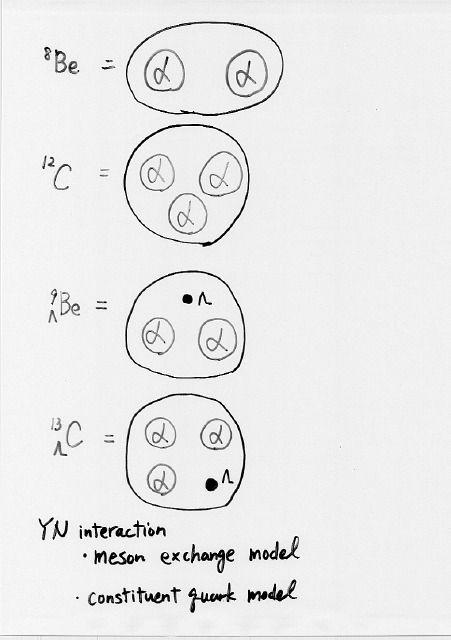 ⁸Be = α α
¹²C = α α α
⁹ΛBe = Λ α α
¹³ΛC = α α α Λ
YN interaction
· meson exchange model
· constituent quark model